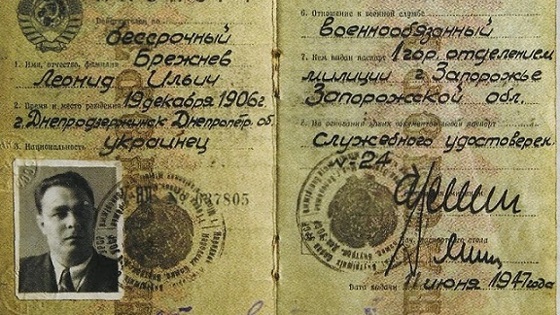 Действителен по
бессрочный
Брежнев
1. Имя, отчество, фамилия
Леонид Ильич
2. Время и место рождения 19 декабря 1906 г.
г. Днепродзержинск Днепропер. об.
3. Национальность
украинец
№ 637805
6. Отношение к военной службе
военнообязанный
7. Кем выдан паспорт 1 гор. отделением
милиции г. Запорожье
Запорожской обл.
8. На основании каких документов выдан паспорт
Служебного удостоверен.
V-24
паспортного стола
Дата выдачи 11 июня 1947 года